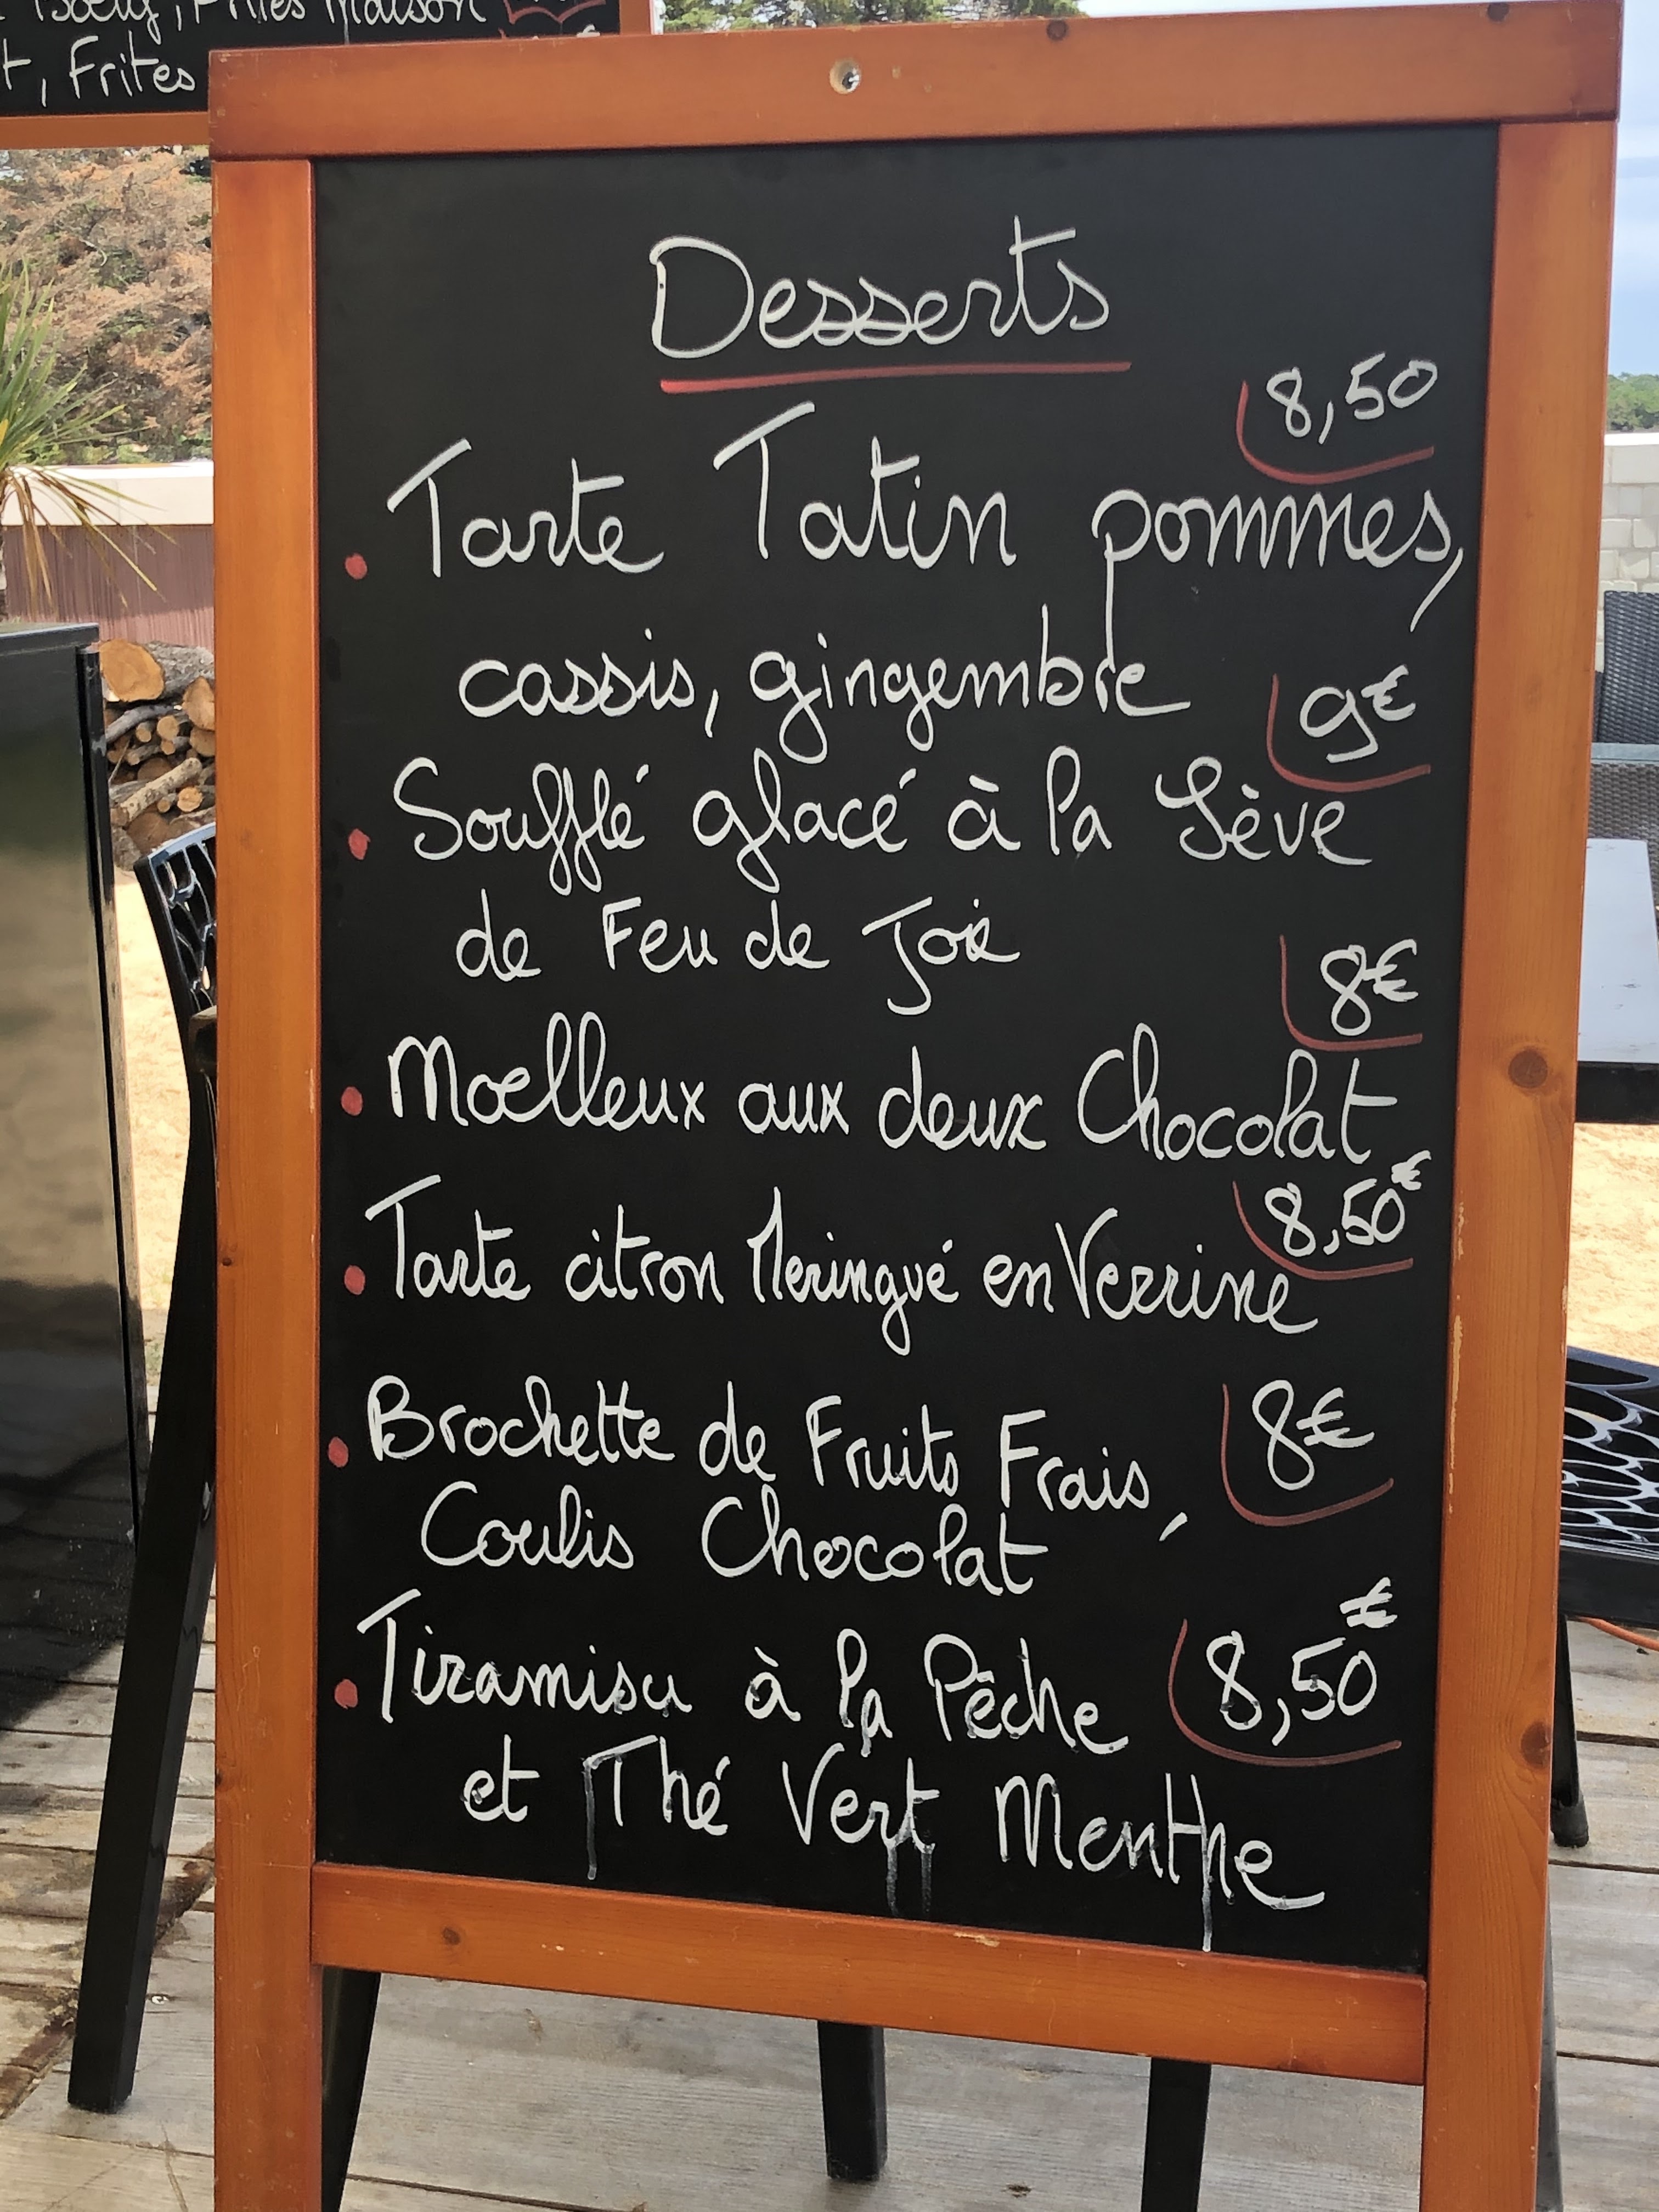 Boeuf, Frites Maison
t, Frites
Desserts
8,50
. Tarte Tatin pommes,
cassis, gingembre
9€
. Soufflé glacé à la Sève
de Feu de Joie
8€
. Moelleux aux deux Chocolat
8,50€
. Tarte citron Meringué en Verrine
. Brochette de Fruits Frais, 8€
Coulis Chocolat
. Tiramisu à la Pêche 8,50€
et Thé Vert Menthe